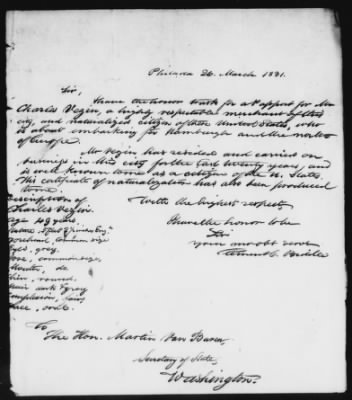 Philada 26. March 1831.
Sir,
I have the honor to ask for a Passport for Mr
Charles Vezin, a highly respectable merchant of this
city, and naturalized citizen of the United States, who
is about embarking for Hamburgh and the north
of Europe.
Mr Vezin has resided and carried on
business in this city for the last twenty years, and
is well known to me as a citizen of the U. States.
The certificate of naturalization has also been produced
to me.
With the highest respect,
I have the honor to be
Sir
your most obt servt
Description of
Charles Vezin.
Age 49 years
Stature, 5 feet
forehead, common size
Eyes, gray.
Nose, common size,
Mouth, do
Chin, round.
Hair dark & gray
Complexion, fair
Face, oval.
To
The Hon. Martin Van Buren
Secretary of State,
Washington.